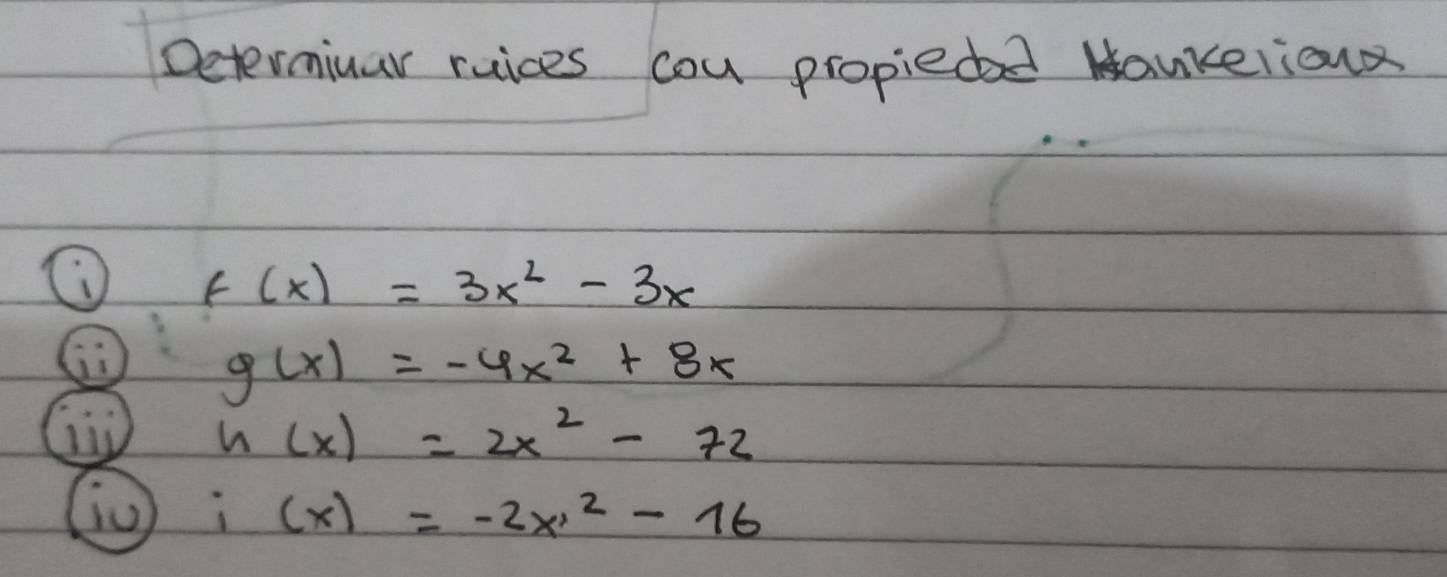 Determinar raices con propiedad Hankeliana
i f(x) = 3x² - 3x
ii g(x) = -4x² + 8x
iii h(x) = 2x² - 72
iv i(x) = -2x² - 16